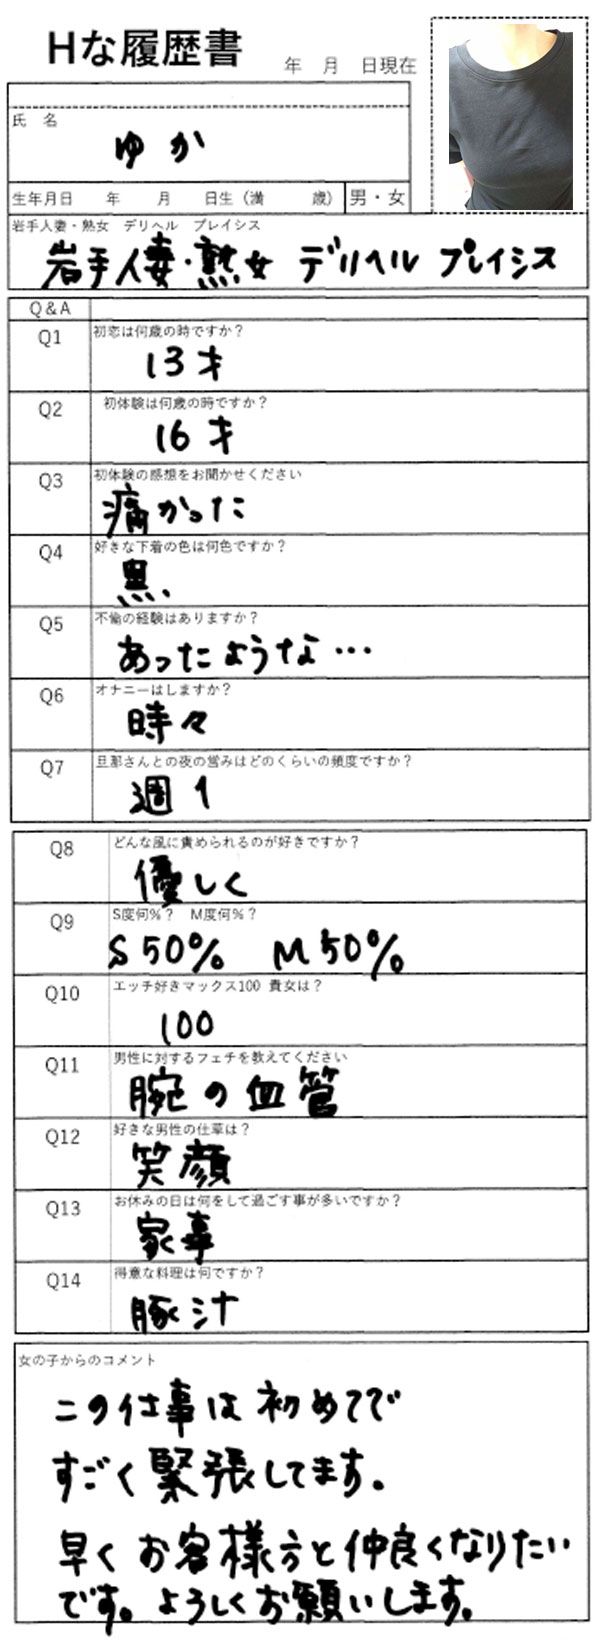 Hな履歴書
年 月 日現在
氏 名
ゆか
生年月日 年 月 日生（満 歳）男・女
岩手人妻・熟女 デリヘル プレイシス
岩手人妻・熟女 デリヘル プレイシス
Q&A
Q1 初恋は何歳の時ですか？
13才
Q2 初体験は何歳の時ですか？
16才
Q3 初体験の感想をお聞かせください
痛かった
Q4 好きな下着の色は何色ですか？
黒
Q5 不倫の経験はありますか？
あったような…
Q6 オナニーはしますか？
時々
Q7 旦那さんとの夜の営みはどのくらいの頻度ですか？
週1
Q8 どんな風に責められるのが好きですか？
優しく
Q9 S度何%？ M度何%？
S50% M50%
Q10 エッチ好きマックス100 貴女は？
100
Q11 男性に対するフェチを教えてください
腕の血管
Q12 好きな男性の仕草は？
笑顔
Q13 お休みの日は何をして過ごす事が多いですか？
家事
Q14 得意な料理は何ですか？
豚汁
女の子からのコメント
この仕事は初めてで
すごく緊張してます。
早くお客様方と仲良くなりたい
です。ようしくお願いします。